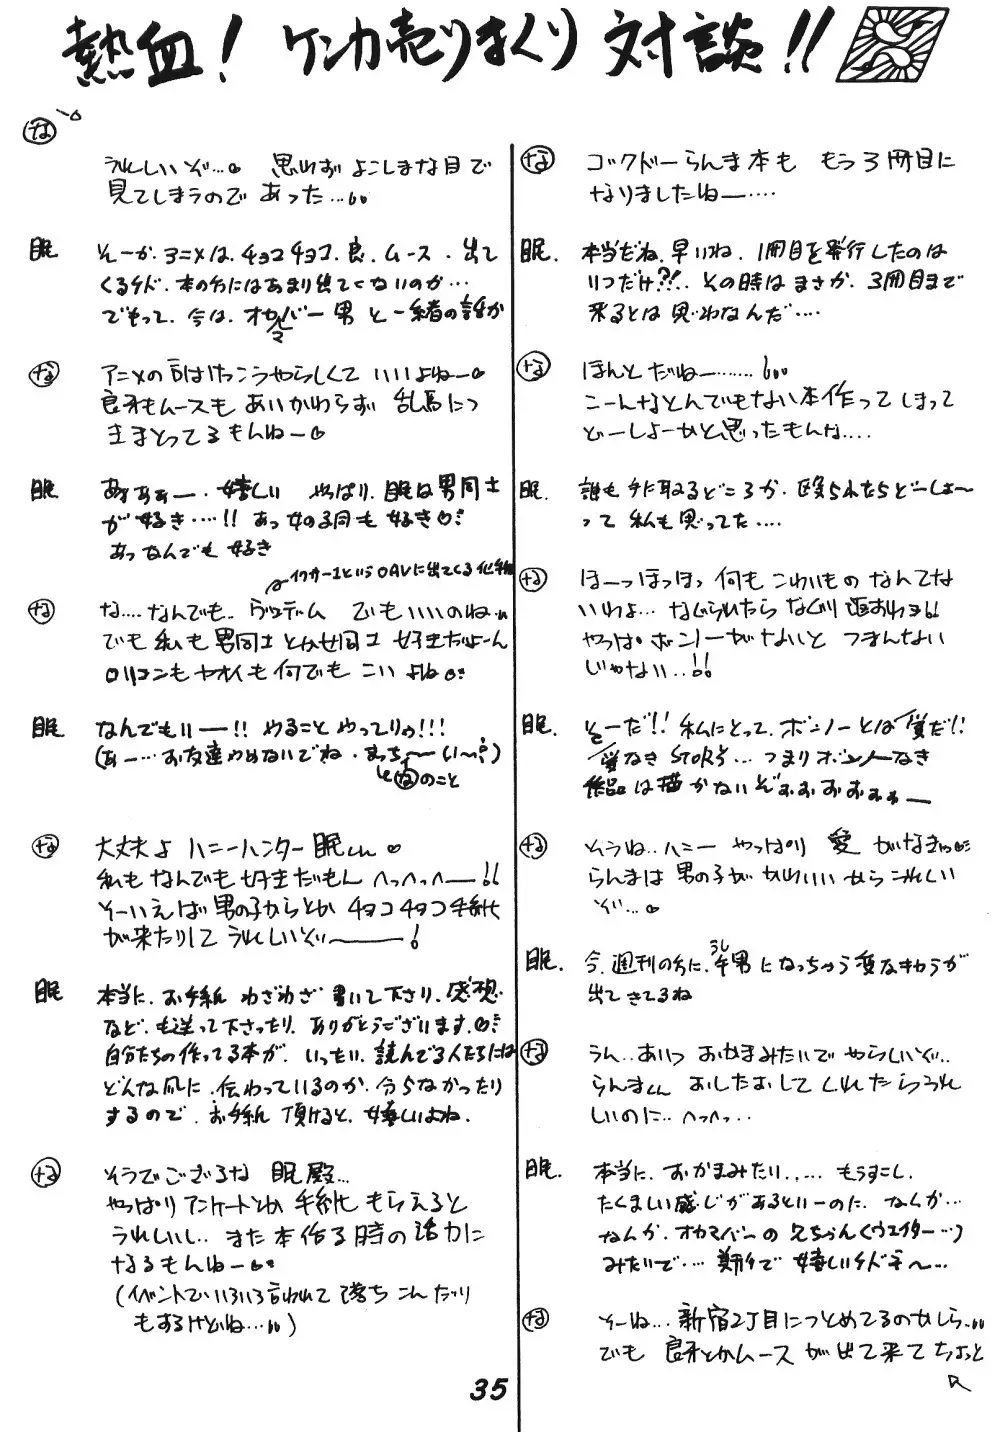 熱血! ケンカ売りまくり 対談!!
な コックドーらんま本も もう3冊目に
なりましたねー‥‥
眠. 本当だね.早いね.1冊目を発行したのは
いつだけ?!.その時はまさか.3冊目まで
来るとは思わなんだ‥‥
な ほんとだねー‥‥‥
こーんなとんでもない本作ってしまって
どーしよーかと思ったもんな‥‥
眠. 誰も手に取るどころか.殴られたらどーしよ〜
って私も思ってた‥‥
な ほーっほっほっ何もこわいものなんてな
いわよ…なぐられたらなぐり返すわよ!!
やっぱボンノーがないとつまんない
じゃない‥!!
眠. そーだ!!私にとって.ボンノーとは愛だ!!
愛なきSTORY…つまりボンノーなき
作品は描かないぞぉぉぉぉぉー
な そうね‥ハニー やっぱり愛がなきゃ♡
らんまは男の子がかわいいからうれしい
ぞ…♡
眠. 今.週刊の方に.牛男になっちゃう変なキャラが
うし
出てきてるね
な うん‥あいつおかまみたいでやらしいぞ‥
らんまくんおしたおしてくれたらうれ
しいのに‥へっへっ‥
眠. 本当に.おかまみたい.‥‥もうすこし.
たくましい感じがあるといーのに.なんか…
なんか.オカマバーの兄ちゃん(ウエイター…)
みたいで‥‥期待で 嬉しいけどネ〜…
な そーね…新宿2丁目につとめてるのかしら‥
でも 良牙とかムースが出て来てちょっと
な
うれしいぞ…♡ 思わずよこしまな目で
見てしまうのであった…
眠 そーか.アニメは.チョコチョコ.良.ムース.出て
くるけど.本の方にはあまり出てこないのか…
でもって.今は.オカマバー男と一緒の話か
な アニメの方はけっこうやらしくていいよねー♡
良牙もムースもあいかわらず乱馬につ
きまとってるもんねー♡
眠 あぁぁぁー.嬉しい やっぱり.眠は男同士
が好き‥‥!! あっ女の子同も好き♡
あっなんでも好き
というOAVに出てくる
な な‥‥なんでも‥ でもいいのね
でも私も男同士とか女同士好きだよーん
ロリコンもヤオイも何でもこいよね♡
眠 なんでもいー!!やることやってりゃ!!!
(あー…お友達やめないでね.まっち〜い〜?)
なのこと
な 大丈夫よ ハニーハンター眠くん♡
私もなんでも好きだもんへっへっへー!!
そーいえば男の子からとかチョコチョコ手紙
が来たりしてうれしいぞー!
眠 本当に.お手紙わざわざ書いて下さり.感想
など.も送って下さったり.ありがとうございます.♡
自分たちの作ってる本が.いったい.読んでる人たちには
どんな風に.伝わっているのか.今らなかったり
するので.お手紙頂けると.嬉しいよね.
な そうでござるな 眠殿…
やっぱりアンケートとか手紙もらえると
うれしいし‥また本作る時の活力に
なるもんねー♡
(イベントでいろいろ言われて落ちこんだり
もするけどね…)
35